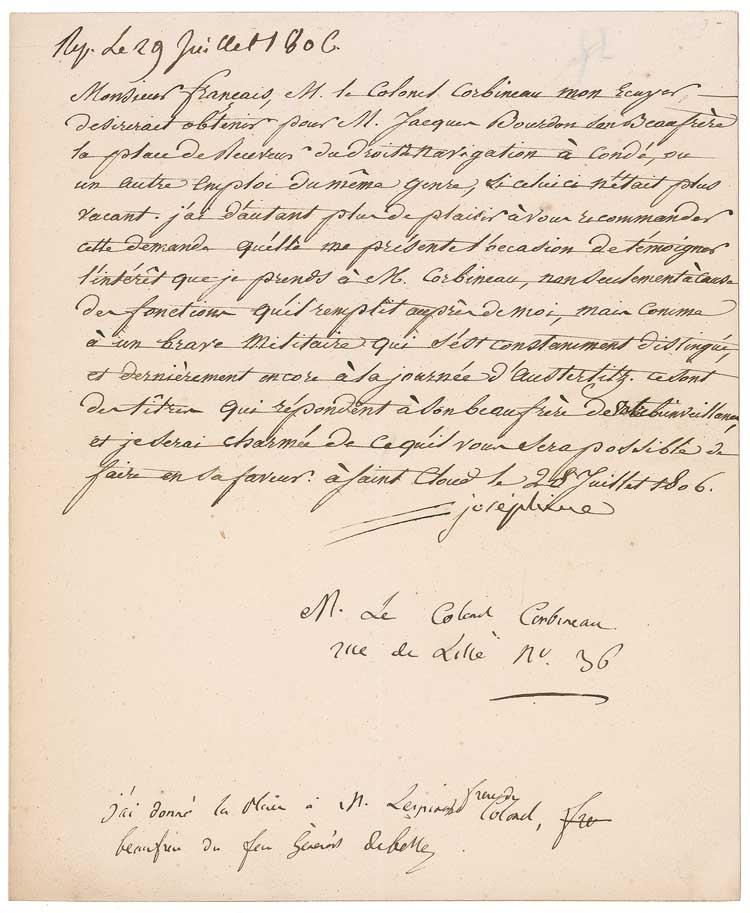 Rep. Le 29 Juillet 1806.
Monsieur français, M. le Colonel Corbineau mon Ecuyer,
desirerait obtenir pour M. Jacques Bourdon son Beaufrère
la place de Receveur du droit de navigation à Condé, ou
un autre emploi du même genre, si celui ci n'était plus
vacant. j'ai d'autant plus de plaisir à vous recommander
cette demande qu'elle me présente l'occasion de témoigner
l'intérêt que je prends à M. Corbineau, non seulement à cause
des fonctions qu'il remplit auprès de moi, mais comme
à un brave Militaire qui s'est constamment distingué,
et dernièrement encore à la journée d'Austerlitz. ce sont
des titres qui répondent à son beaufrère de votre bienveillance,
et je serai charmée de ce qu'il vous sera possible de
faire en sa faveur. à Saint Cloud le 28 Juillet 1806.
joséphine
M. Le Colonel Corbineau
rue de Lille No. 36
frère du
j'ai donné la place à M. Colonel,
beaufrere du feu Général debelle